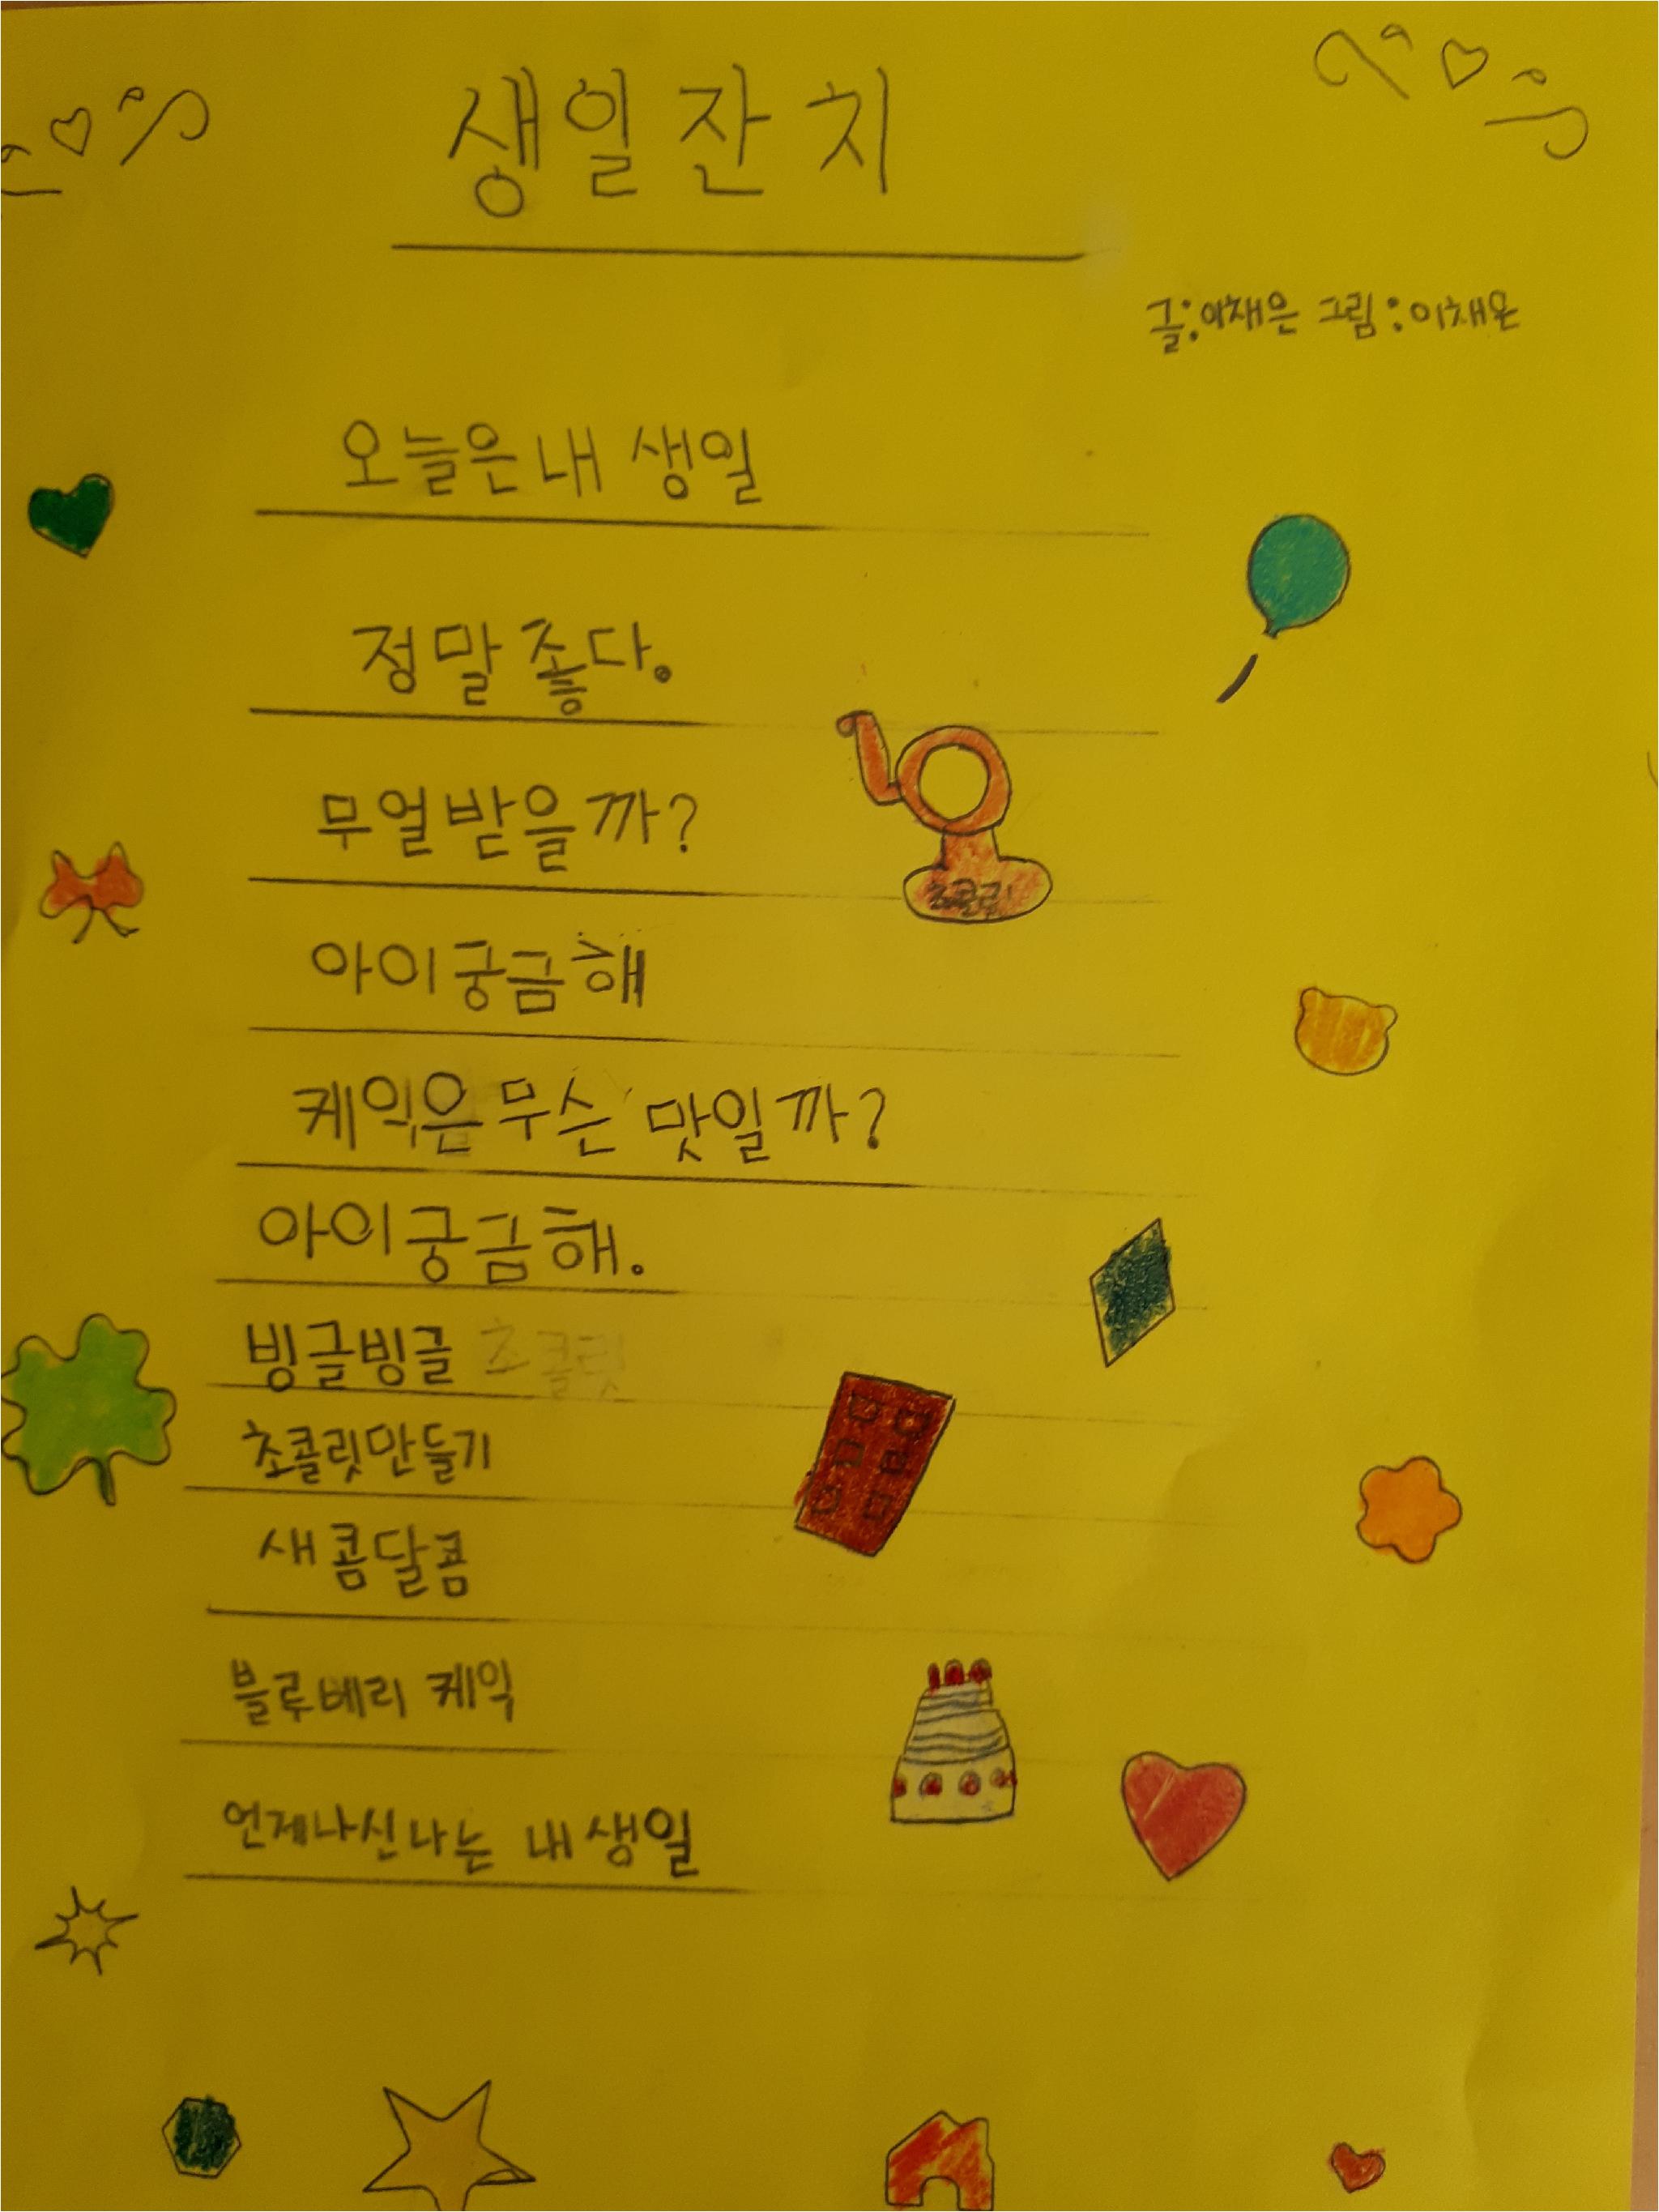 생일잔치
글:이채은 그림:이채은
오늘은 내 생일
정말 좋다.
무얼 받을까?
초콜릿
아이 궁금해
케익은 무슨 맛일까?
아이 궁금해.
빙글빙글 초콜릿
초콜릿만들기
새콤달콤
블루베리 케익
언제나신나는 내 생일